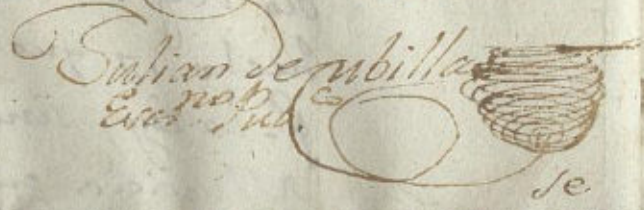 Julian de ubilla
Esno Pubco
se